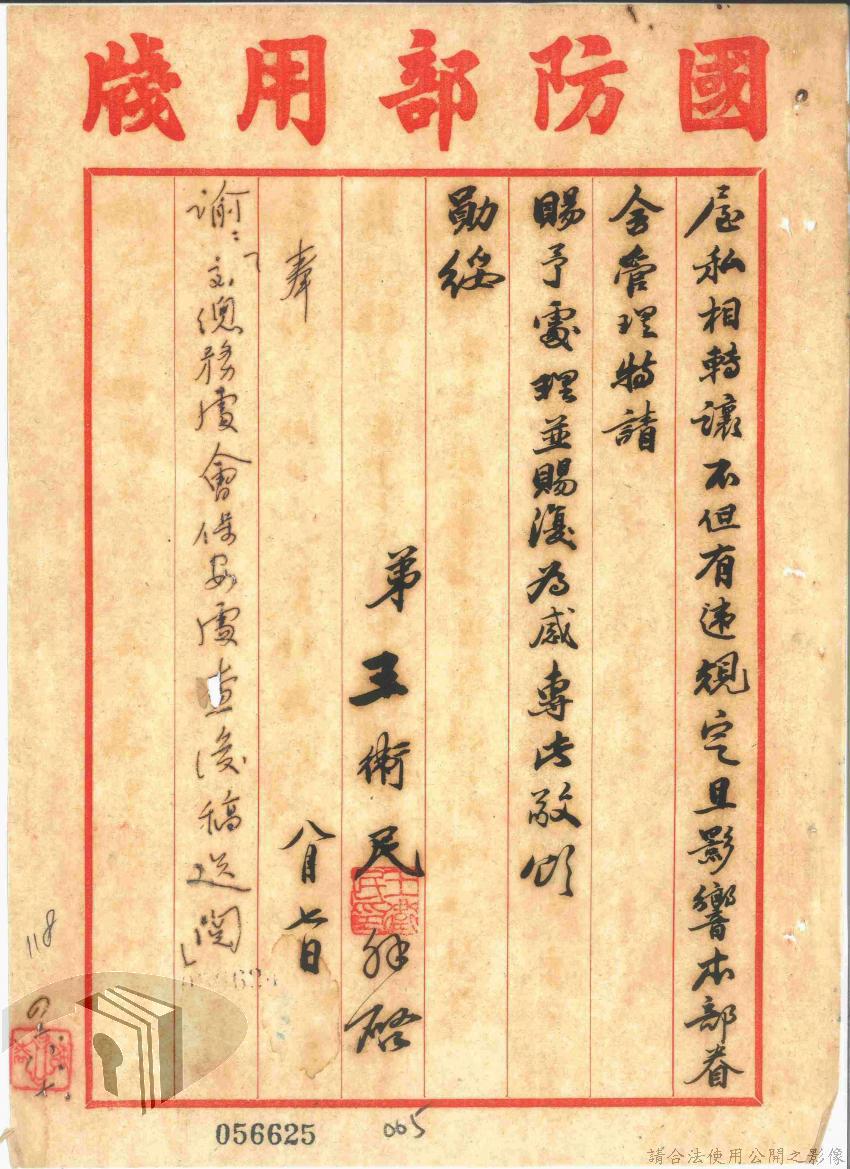 國防部用牋
屋私相轉讓不但有违規定且影響本部眷
舍管理特請
賜予處理並賜復為感專此敬頌
勛綏
弟王術民拜啓
八月七日
奉
諭:「交總務處會保安處查後稿送閱」
118
056625
005
請合法使用公開之影像